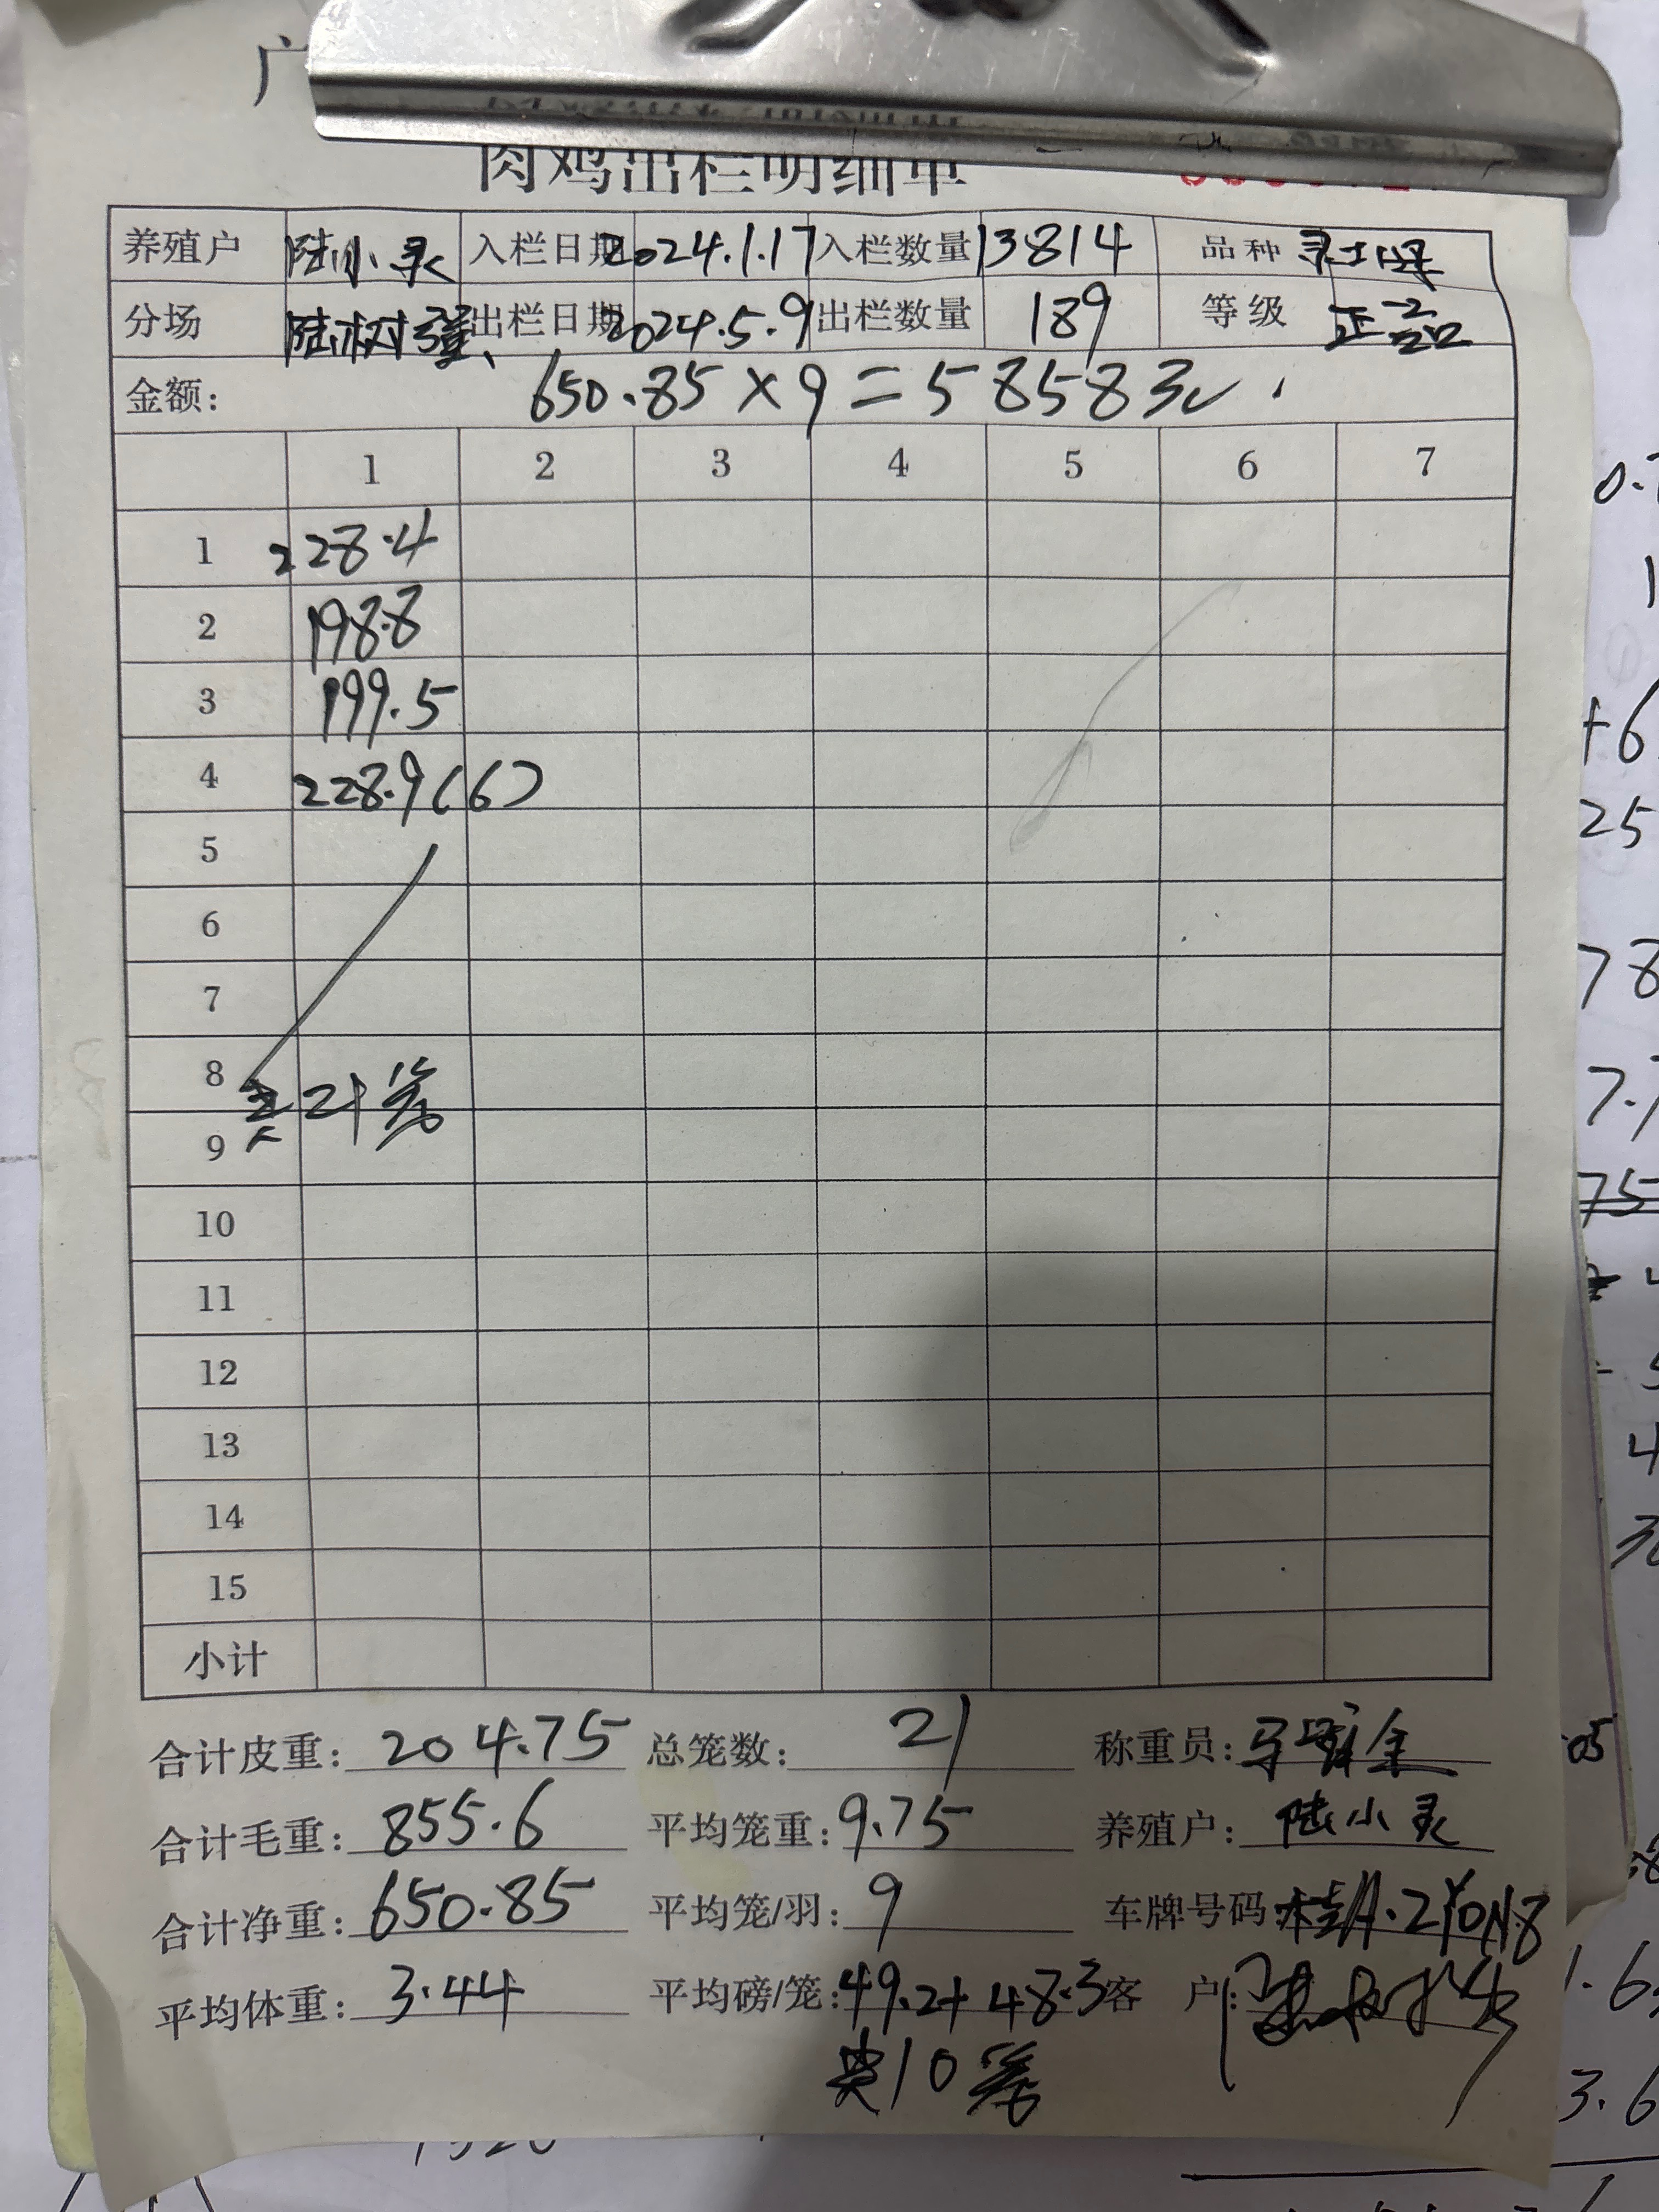 广
肉鸡出栏明细单
养殖户 陆小灵 入栏日期 2024.1.17 入栏数量 13814 品种
分场 陆树强 出栏日期 2024.5.9 出栏数量 189 等级 正品
金额: 650.85×9=58583
1 2 3 4 5 6 7
1 228.4
2 198.8
3 199.5
4 228.9(6)
5
6
7
8
共21笼
9
10
11
12
13
14
15
小计
合计皮重: 204.75 总笼数: 21 称重员:
合计毛重: 855.6 平均笼重: 9.75 养殖户: 陆小灵
合计净重: 650.85 平均笼/羽: 9 车牌号码:
平均体重: 3.44 平均磅/笼: 49.2+48.3 客户:
共10笼